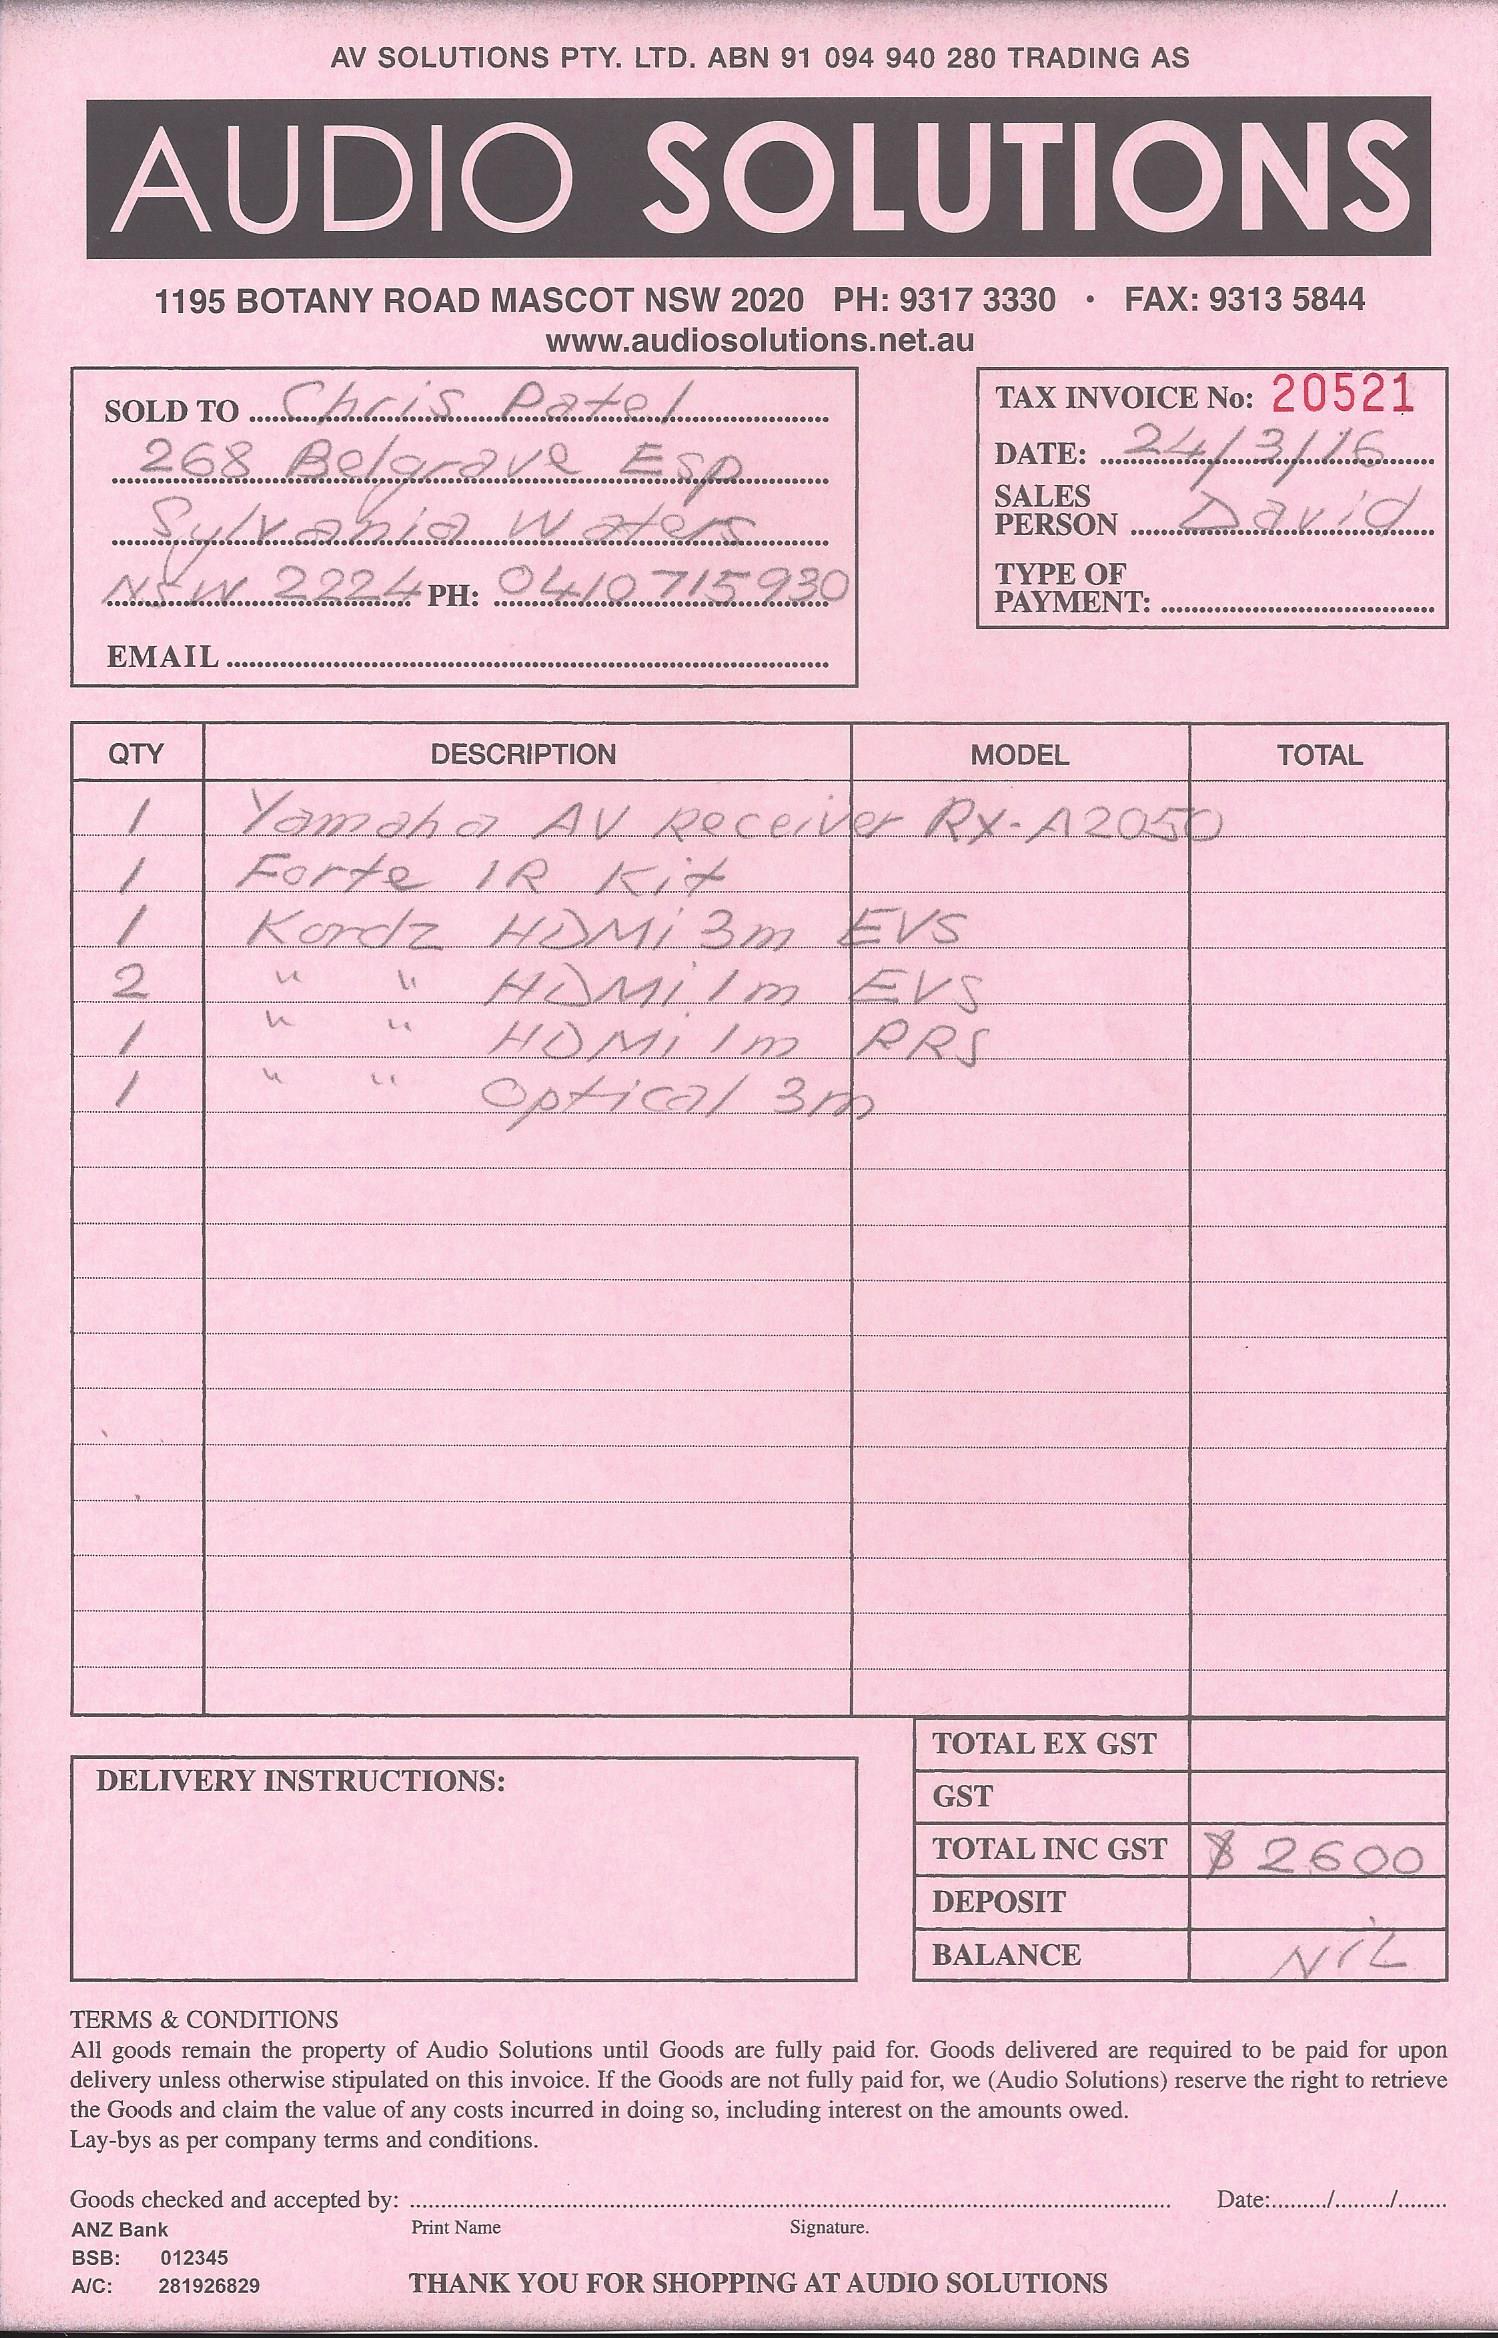 AV SOLUTIONS PTY. LTD. ABN 91 094 940 280 TRADING AS
AUDIO SOLUTIONS
1195 BOTANY ROAD MASCOT NSW 2020 PH: 9317 3330 • FAX: 9313 5844
www.audiosolutions.net.au
SOLD TO Chris Patel
268 Belgrave Esp
Sylvania Waters
NSW 2224 PH: 0410 715 930
EMAIL
TAX INVOICE No: 20521
DATE: 24/3/16
SALES
PERSON David
TYPE OF
PAYMENT:
QTY DESCRIPTION MODEL TOTAL
1 Yamaha AV Receiver RX-A2050
1 Forte IR Kit
1 Kordz HDMi 3m EVS
2 " " HDMi 1m EVS
1 " " HDMi 1m RRS
1 " " Optical 3m
TOTAL EX GST
GST
TOTAL INC GST $2600
DEPOSIT
BALANCE NiL
DELIVERY INSTRUCTIONS:
TERMS & CONDITIONS
All goods remain the property of Audio Solutions until Goods are fully paid for. Goods delivered are required to be paid for upon
delivery unless otherwise stipulated on this invoice. If the Goods are not fully paid for, we (Audio Solutions) reserve the right to retrieve
the Goods and claim the value of any costs incurred in doing so, including interest on the amounts owed.
Lay-bys as per company terms and conditions.
Goods checked and accepted by: Date:........./........./........
Print Name Signature.
ANZ Bank
BSB: 012345
A/C: 281926829
THANK YOU FOR SHOPPING AT AUDIO SOLUTIONS